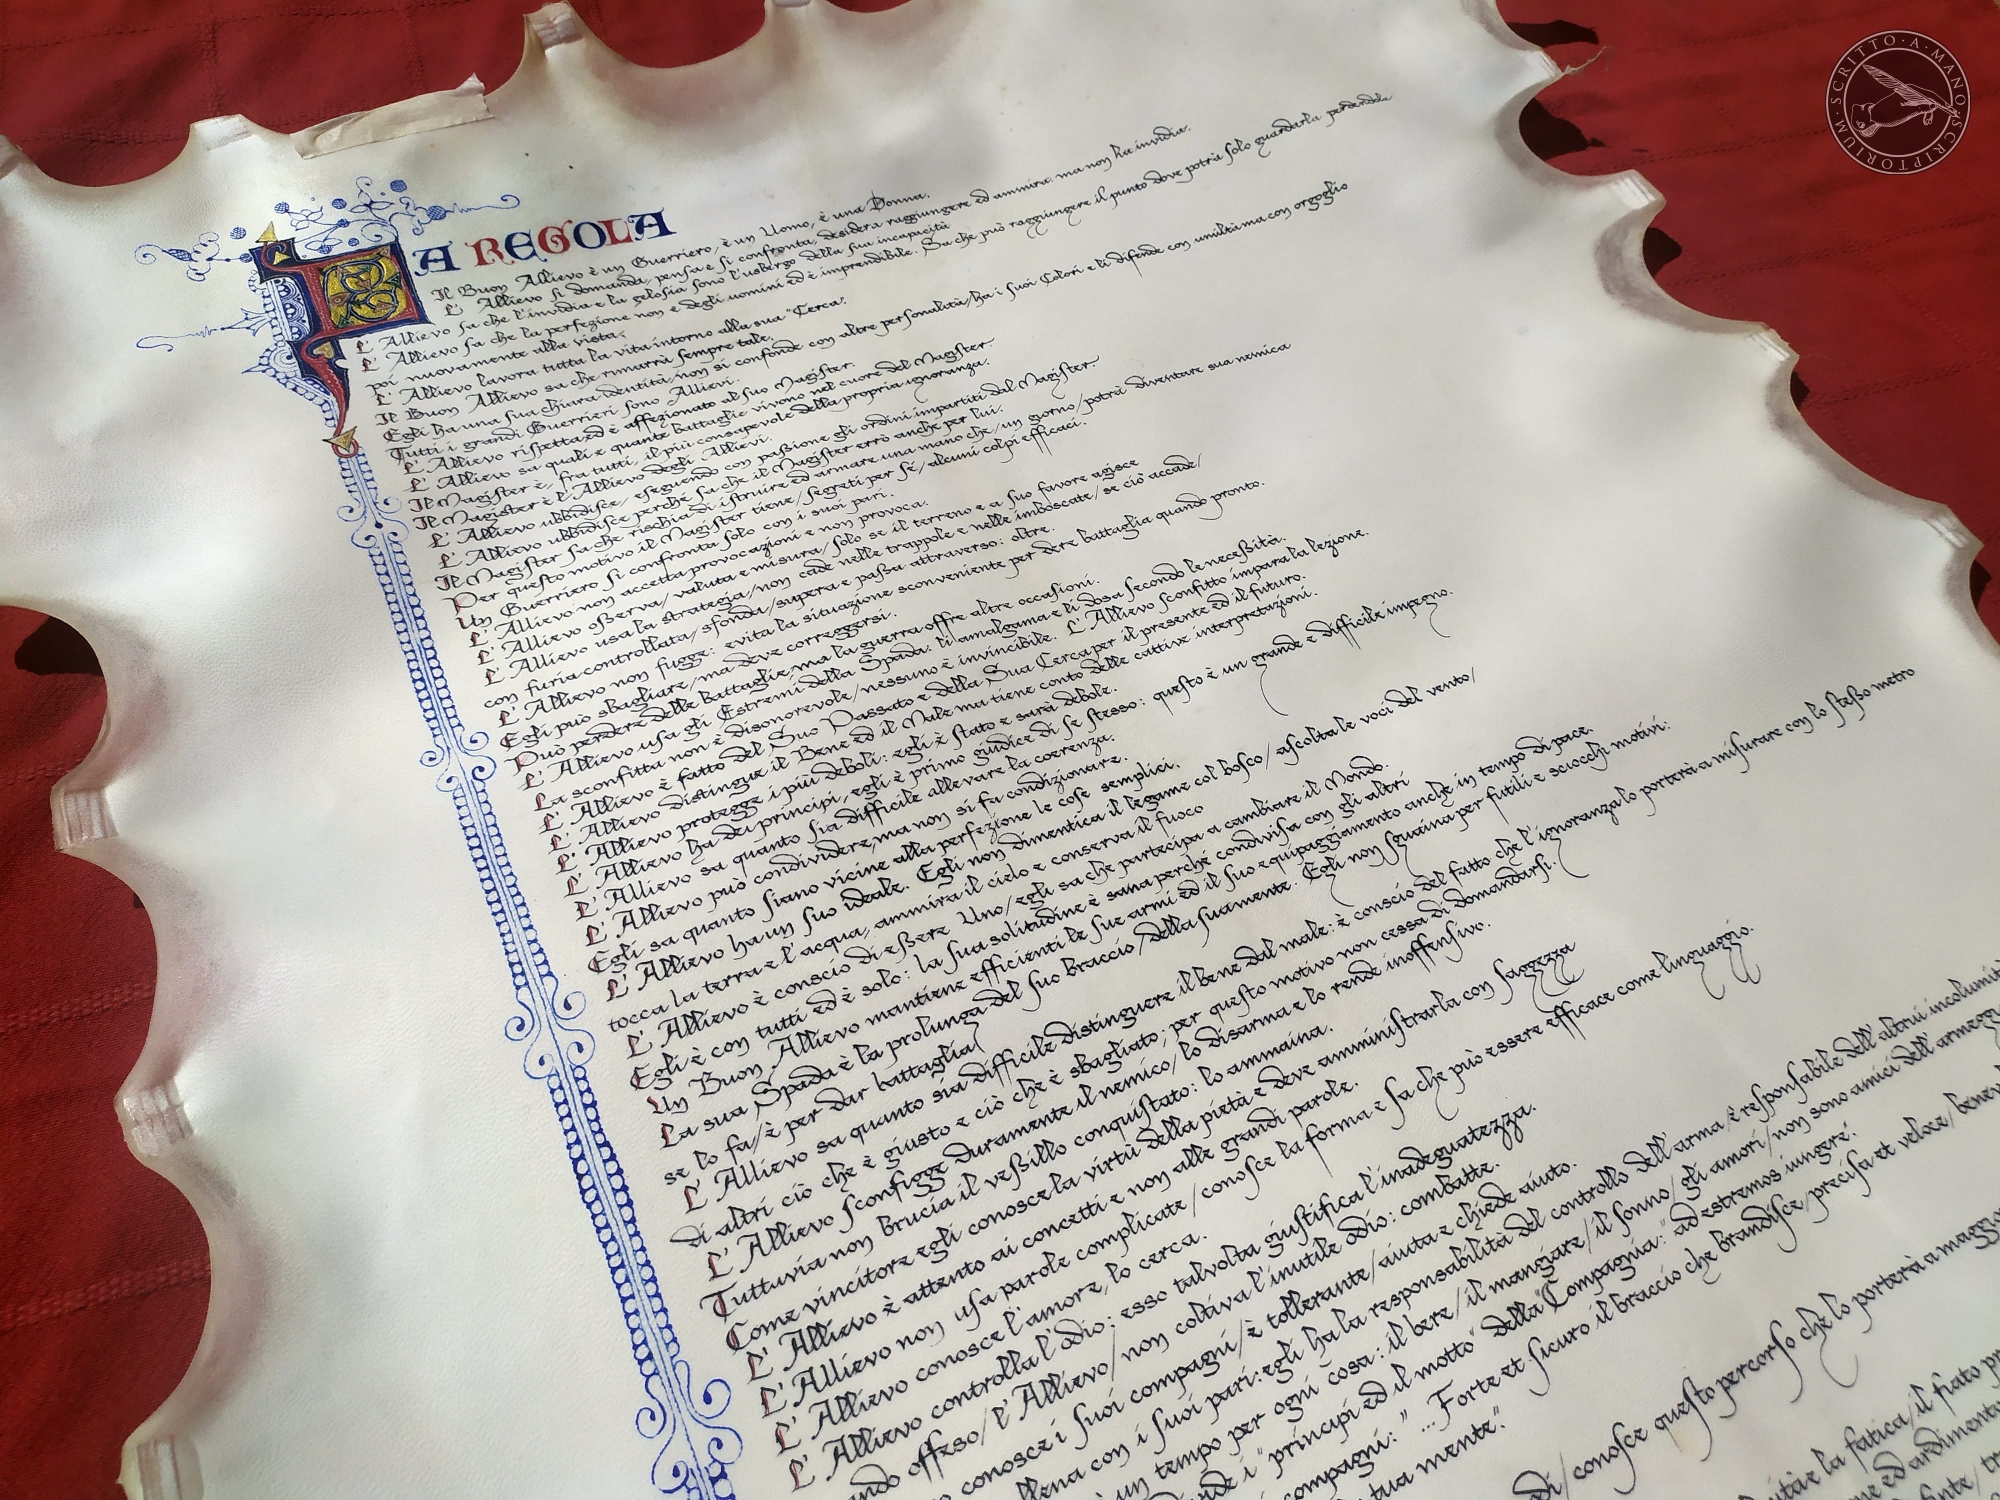 LA REGOLA
Il Buon Allievo è un Guerriero, è un Uomo, è una Donna.
L' Allievo si domanda, pensa e si confronta, desidera raggiungere ed ammira: ma non ha invidia.
L' Allievo sa che l'invidia e la gelosia sono l'usbergo della sua incapacità
L' Allievo sa che la perfezione non è degli uomini ed è imprendibile. Sa che può raggiungere il punto dove potrà solo guardarla perdendola
poi nuovamente alla vista.
L' Allievo lavora tutta la vita intorno alla sua "Cerca:
Il Buon Allievo sa che rimarrà sempre tale.
Egli ha una sua chiara identità, non si confonde con altre personalità, ha i suoi Colori e li difende con umiltà ma con orgoglio
Tutti i grandi Guerrieri sono Allievi.
L' Allievo rispetta ed è affezionato al suo Magister.
L' Allievo sa quali e quante battaglie vivono nel cuore del Magister
Il Magister è, fra tutti, il più consapevole della propria ignoranza.
Il Magister è l'Allievo degli Allievi.
L' Allievo ubbidisce, eseguendo con passione gli ordini impartiti dal Magister.
L' Allievo ubbidisce perché sa che il Magister errò anche per lui.
Il Magister sa che rischia di istruire ed armare una mano che/ un giorno/ potrà diventare sua nemica
Per questo motivo il Magister tiene/ segreti per sé/ alcuni colpi efficaci.
Un Guerriero si confronta solo con i suoi pari.
L' Allievo non accetta provocazioni e non provoca.
L' Allievo osserva/ valuta e misura/ solo se il terreno e a suo favore agisce
L' Allievo usa la strategia/ non cade nelle trappole e nelle imboscate/ se ciò accade/
con furia controllata/ sfonda/ supera e passa attraverso: oltre.
L' Allievo non fugge: evita la situazione sconveniente per dere battaglia quando pronto.
Egli può sbagliare/ ma deve correggersi.
Può perdere delle battaglie/ ma la guerra offre altre occasioni.
L' Allievo usa gli Estremi della Spada: li amalgama e li dosa secondo le necessità.
La sconfitta non è disonorevole/ nessuno è invincibile. L' Allievo sconfitto impara la lezione.
L' Allievo è fatto del Suo Passato e della Sua Cerca per il presente ed il futuro.
L' Allievo distingue il Bene ed il Male ma tiene conto delle cattive interpretazioni.
L' Allievo protegge i più deboli: egli è stato e sarà debole.
L' Allievo ha dei principi, egli è primo giudice di se stesso: questo è un grande e difficile impegno.
L' Allievo sa quanto sia difficile allevare la coerenza.
L' Allievo può condividere, ma non si fa condizionare.
Egli sa quanto siano vicine alla perfezione le cose semplici.
L' Allievo ha un suo ideale. Egli non dimentica il legame col bosco/ ascolta le voci del vento/
tocca la terra e l'acqua, ammira il cielo e conserva il fuoco
L' Allievo è conscio di essere Uno/ egli sa che partecipa a cambiare il Mondo.
Egli è con tutti ed è solo: la sua solitudine è sana perché condivisa con gli altri
Un Buon Allievo mantiene efficienti le sue armi ed il suo equipaggiamento anche in tempo di pace.
La sua Spada è la prolunga del suo braccio/ della sua mente. Egli non sguaina per futili e sciocchi motivi:
se lo fa/ è per dar battaglia
L' Allievo sa quanto sia difficile distinguere il bene dal male: è conscio del fatto che l'ignoranza lo porterà a misurare con lo stesso metro
di altri ciò che è giusto e ciò che è sbagliato; per questo motivo non cessa di domandarsi.
L' Allievo sconfigge duramente il nemico/ lo disarma e lo rende inoffensivo.
Tuttavia non brucia il vessillo conquistato: lo ammaina.
Come vincitore egli conosce la virtù della pietà e deve amministrarla con saggezza
L' Allievo è attento ai concetti e non alle grandi parole.
L' Allievo non usa parole complicate/ conosce la forma e sa che può essere efficace come linguaggio.
L' Allievo conosce l'amore, lo cerca.
L' Allievo controlla l'odio: esso talvolta giustifica l'inadeguatezza.
offeso/ l'Allievo/ non coltiva l'inutile odio: combatte.
conosce i suoi compagni/ è tollerante/ aiuta e chiede aiuto.
con i suoi pari: egli ha la responsabilità del controllo dell'arma/ è responsabile dell'altrui incolumità
un tempo per ogni cosa: il bere/ il mangiare/ il sonno/ gli amori/ non sono amici dell'armeggiare
i "principi ed il motto" della "Compagnia:" ad estremos iungere:
compagni: "...Forte et sicuro il braccio che brandisce/ precisa et veloce/
tua mente".
conosce questo percorso che lo porterà a
la fatica/ il fiato
ed ardimento
SCRITTO · A · MANO · SCRIPTORIUM